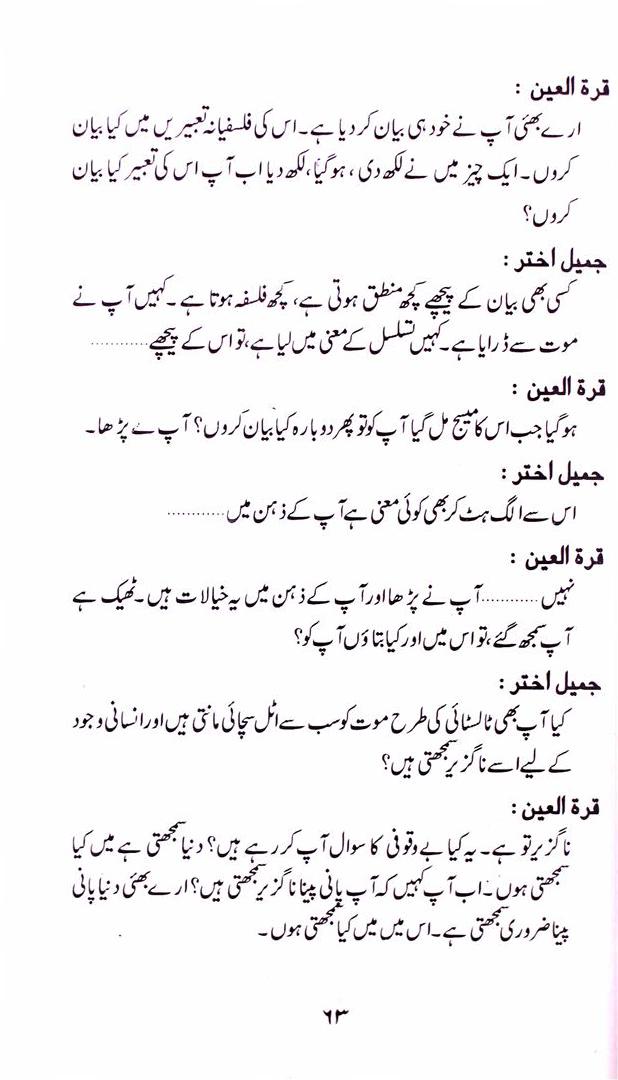 قرۃ العین :
ارے بھئی آپ نے خود ہی بیان کر دیا ہے۔ اس کی فلسفیانہ تعبیریں میں کیا بیان
کروں۔ ایک چیز میں نے لکھ دی ، ہوگیا، لکھ دیا اب آپ اس کی تعبیر کیا بیان
کروں؟
جمیل اختر :
کسی بھی بیان کے پیچھے کچھ منطق ہوتی ہے، کچھ فلسفہ ہوتا ہے ۔ کہیں آپ نے
موت سے ڈرایا ہے۔ کہیں تسلسل کے معنی میں لیا ہے، تو اس کے پیچھے............
قرۃ العین :
ہوگیا جب اس کا میسج مل گیا آپ کو تو پھر دوبارہ کیا بیان کروں؟ آپ ے پڑھا۔
جمیل اختر :
اس سے الگ ہٹ کر بھی کوئی معنی ہے آپ کے ذہن میں............
قرۃ العین :
نہیں............آپ نے پڑھا اور آپ کے ذہن میں یہ خیالات ہیں۔ ٹھیک ہے
آپ سمجھ گئے، تو اس میں اور کیا بتاؤں آپ کو؟
جمیل اختر :
کیا آپ بھی ٹالسٹائی کی طرح موت کو سب سے اٹل سچائی مانتی ہیں اور انسانی وجود
کے لیے اسے ناگزیر سمجھتی ہیں؟
قرۃ العین :
ناگزیر تو ہے۔ یہ کیا بے وقوفی کا سوال آپ کر رہے ہیں؟ دنیا سمجھتی ہے میں کیا
سمجھتی ہوں۔ اب آپ کہیں کہ آپ پانی پینا ناگزیر سمجھتی ہیں؟ ارے بھئی دنیا پانی
پینا ضروری سمجھتی ہے۔ اس میں میں کیا سمجھتی ہوں۔
۶۳